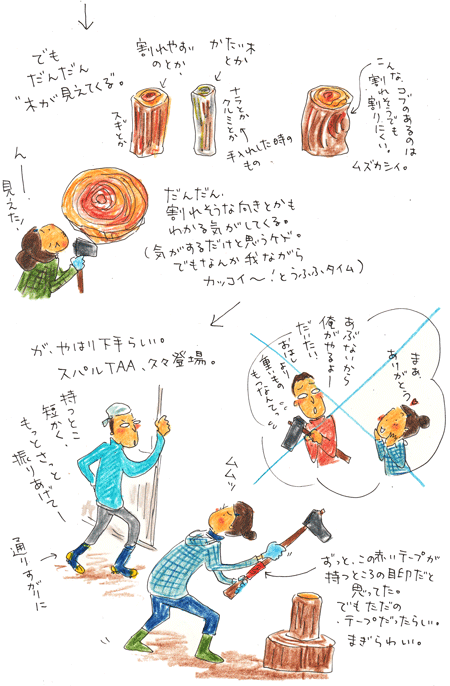 でも
だんだん
“木が見えてくる”。
割れやすい
のとか、
かたい木
とか
スギとか
ナラとか
クルミとか
手入れした時の
もの。
こんな、コブのあるのは
割れそうでも
割りにくい。
ムズカシイ。
んー
見えた!
だんだん、
割れそうな向きとかも
わかる気がしてくる。
(気がするだけと思うケド。
でもなんか我ながら
カッコイ〜!とうふふタイム)
が、やはり下手らしい。
スパルTAA、久々登場。
あぶないから
俺がやるよー
だいたい、
おはしより
重いもの
もつなんて…
まぁ、
ありがとう
持つとこ
短かく、
もっとさっと
振りあげてー
通りすがりに
ムムッ
ずっと、この赤いテープが
持つところの目印だと
思ってた。
でもただの
テープだったらしい。
まぎらわしい。